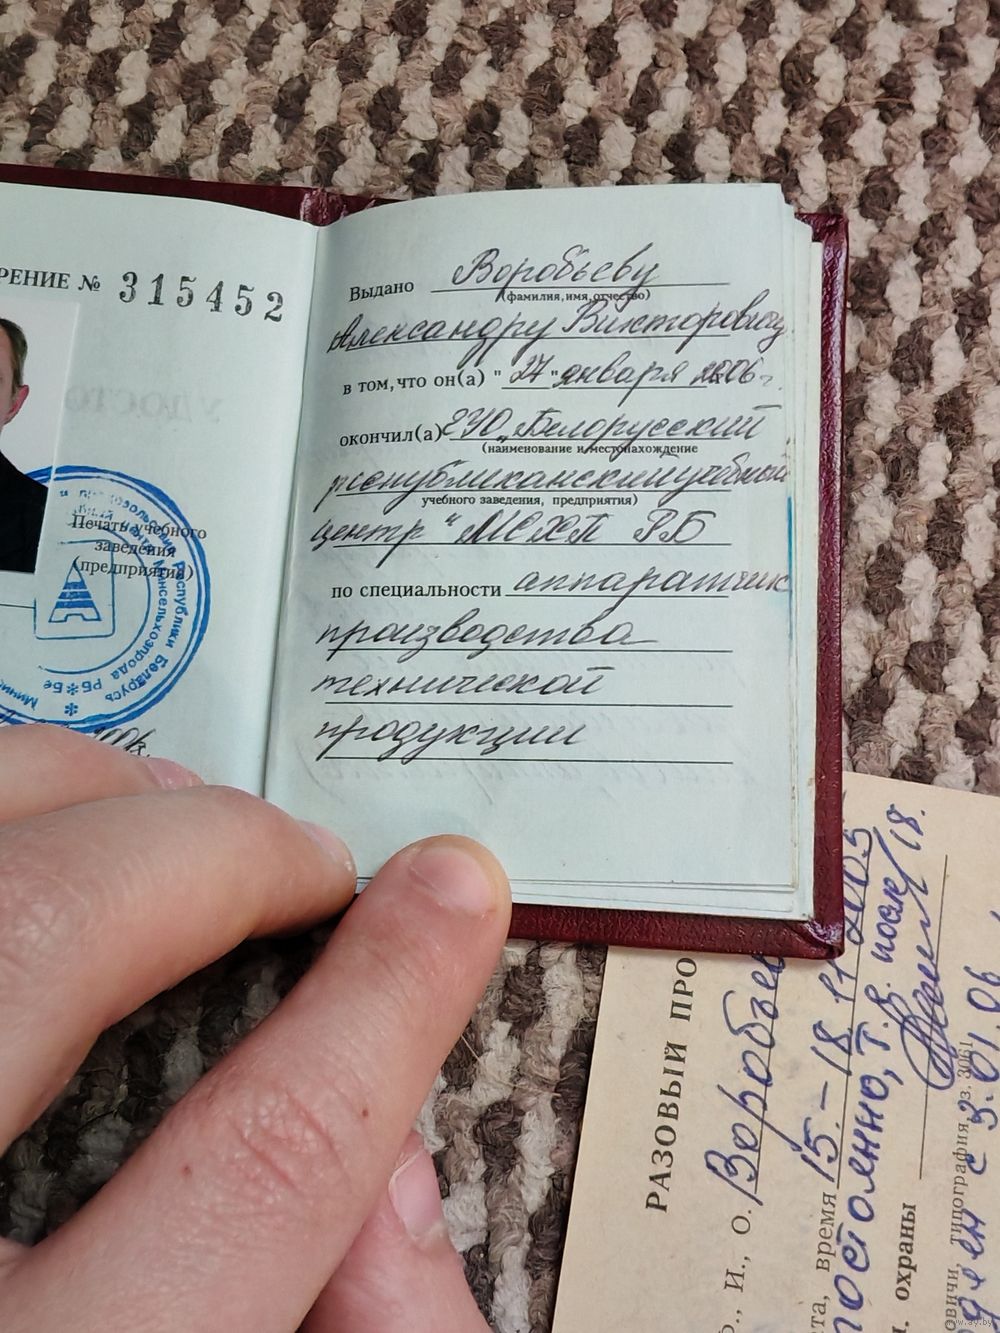 РЕНИЕ № 315452
Печать учебного
заведения
(предприятия)
Выдано Воробьеву
(фамилия, имя, отчество)
Александру Викторовичу
в том, что он(а) "27" января 2006 г.
окончил(а) ГУО „Белорусский
(наименование и местонахождение
республиканский учебный
учебного заведения, предприятия)
центр" МСХП РБ
по специальности аппаратчик
производства
технической
продукции
РАЗОВЫЙ ПРО
Ф., И., О. Воробьев
та, время 15.-18 11 2005
постоянно, т.ч. после 18.
охраны
овичи, типография, з. 3061
с 3.01.06
www.ay.by